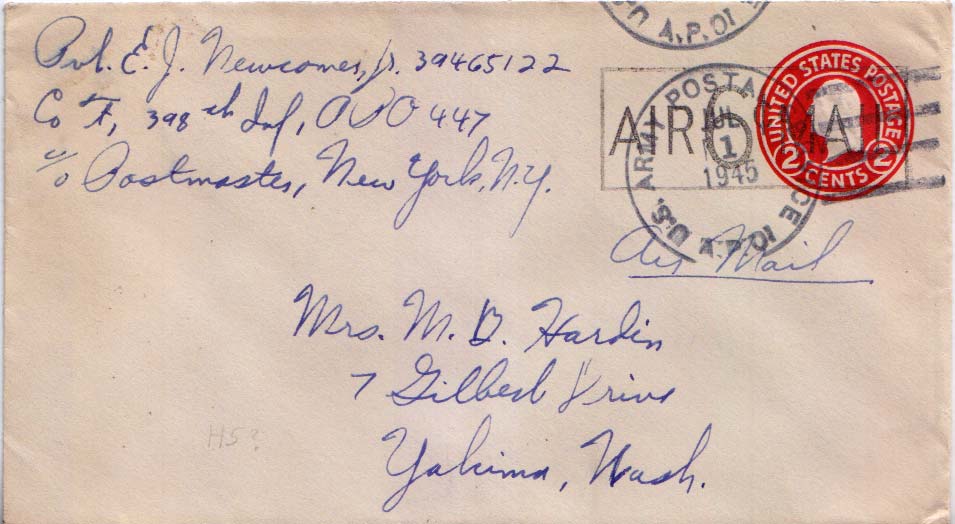 Pvt. E. J. Newcomer, Jr. 39465122
Co F, 398th Inf, APO 447
c/o Postmaster, New York, N.Y.
U.S. A.P.O.
UNITED STATES POSTAGE
2 CENTS 2
AIR MAIL
6
U.S. ARMY POSTAL
JUL
1
1945
A.P.O.
Air Mail
Mrs. M. D. Hardin
7 Gilbert Drive
Yakima, Wash.
H5?